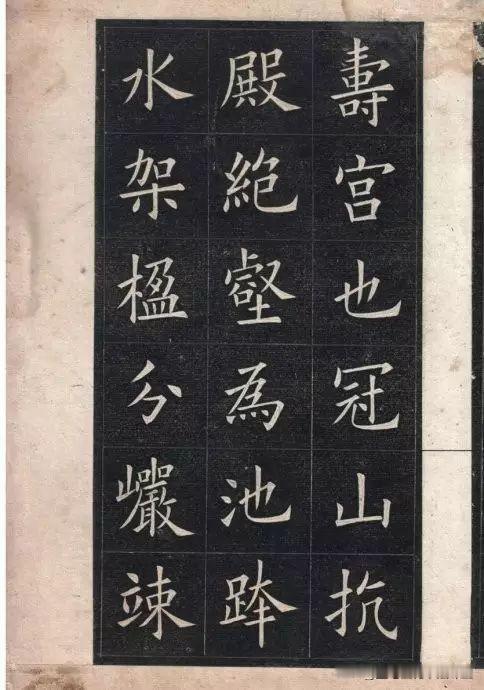 壽宫也冠山抗
殿絶壑為池跨
水架楹分巖竦